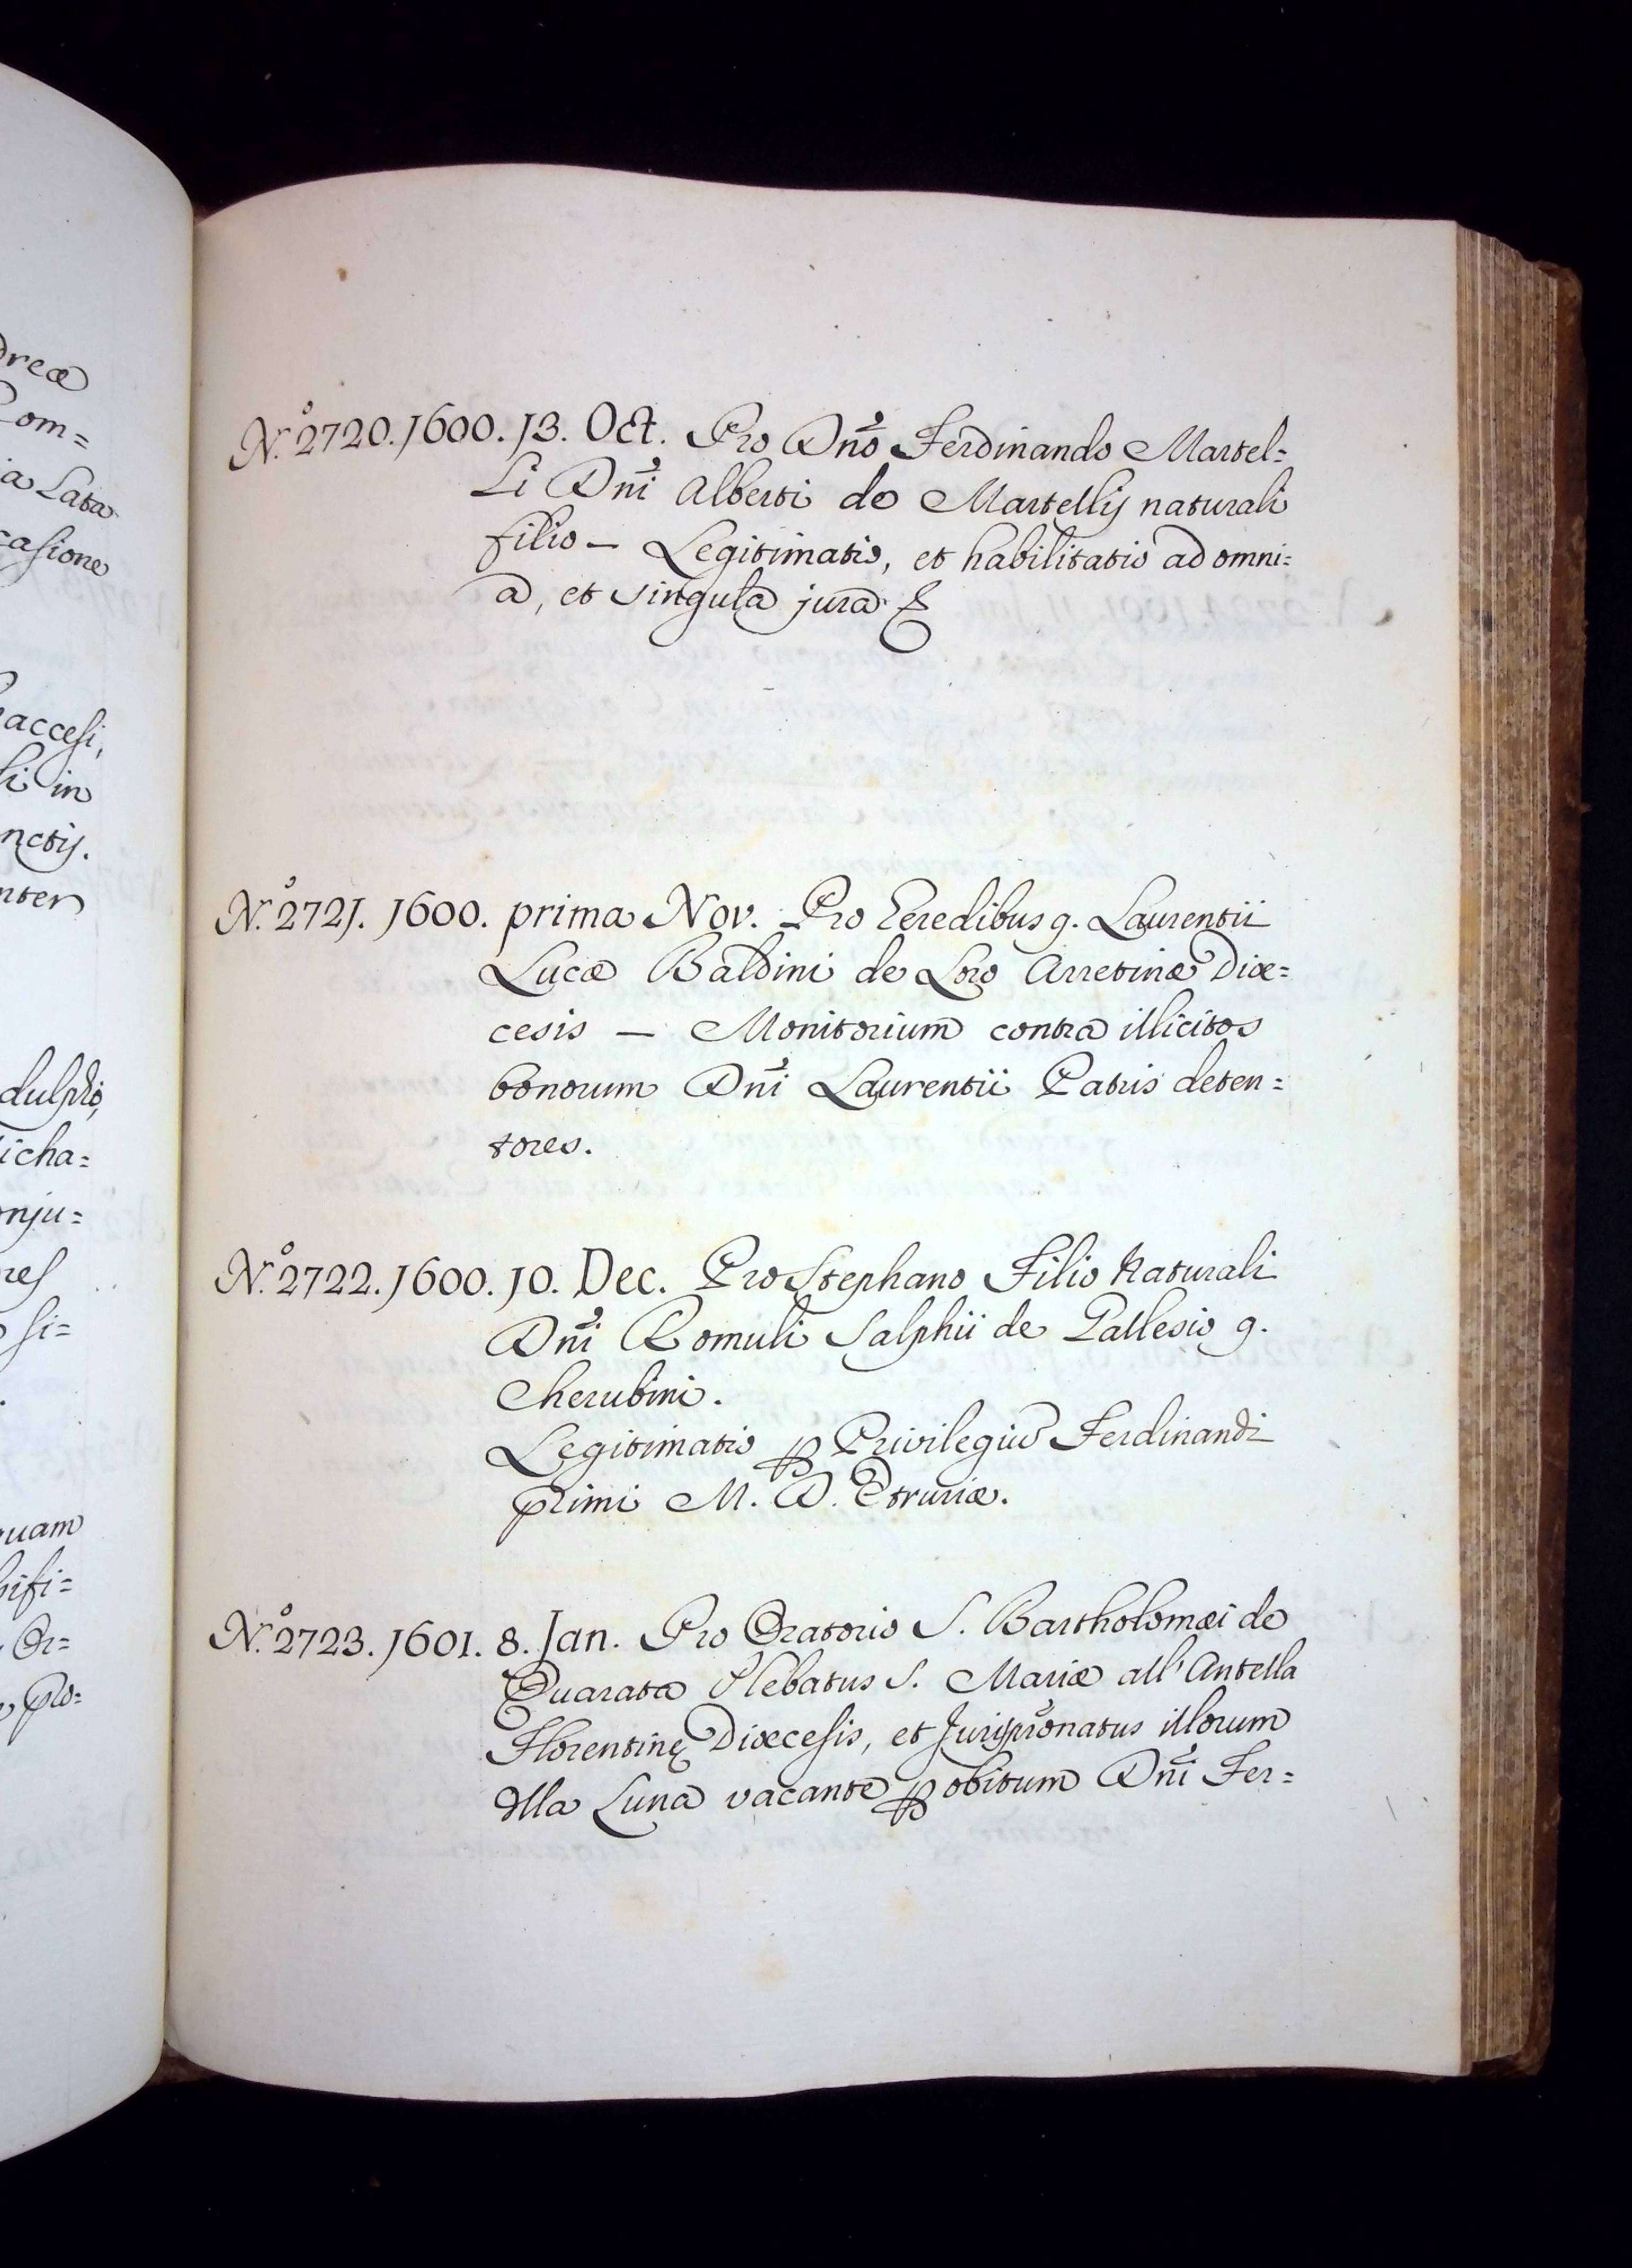 dreæ
Rom=
ia Lata
casione
accesi,
li in
nctij.
nter
dulpho,
icha=
onju=
res
si=
quam
nifi=
Or=
pro=
N.º 2720. 1600. 13. Oct. Pro Dño Ferdinando Martel=
li Dñi Alberti de Martellij naturali
filio — Legitimatio, et habilitatio ad omni=
a, et singula jura &
N.º 2721. 1600. prima Nov. Pro Eeredibus q. Laurentii
Lucæ Baldini de Loro Arretinæ Diœ=
cesis — Monitorium contra illicitos
bonorum Dñi Laurentii Patris deten=
tores.
N.º 2722. 1600. 10. Dec. Pro Stephano Filio Naturali
Dñi Romuli Salphii de Pallesio q.
Cherubini.
Legitimatio ꝑ Privilegiũ Ferdinandi
primi M. D. Etruriæ.
N.º 2723. 1601. 8. Jan. Pro Oratorio S. Bartholomæi de
Quarata Plebatus S. Mariæ all' Antella
Florentinę Diœcesis, et Jurispr̃onatus illorum
Illa Luna vacante ꝑ obitum Dñi Fer=